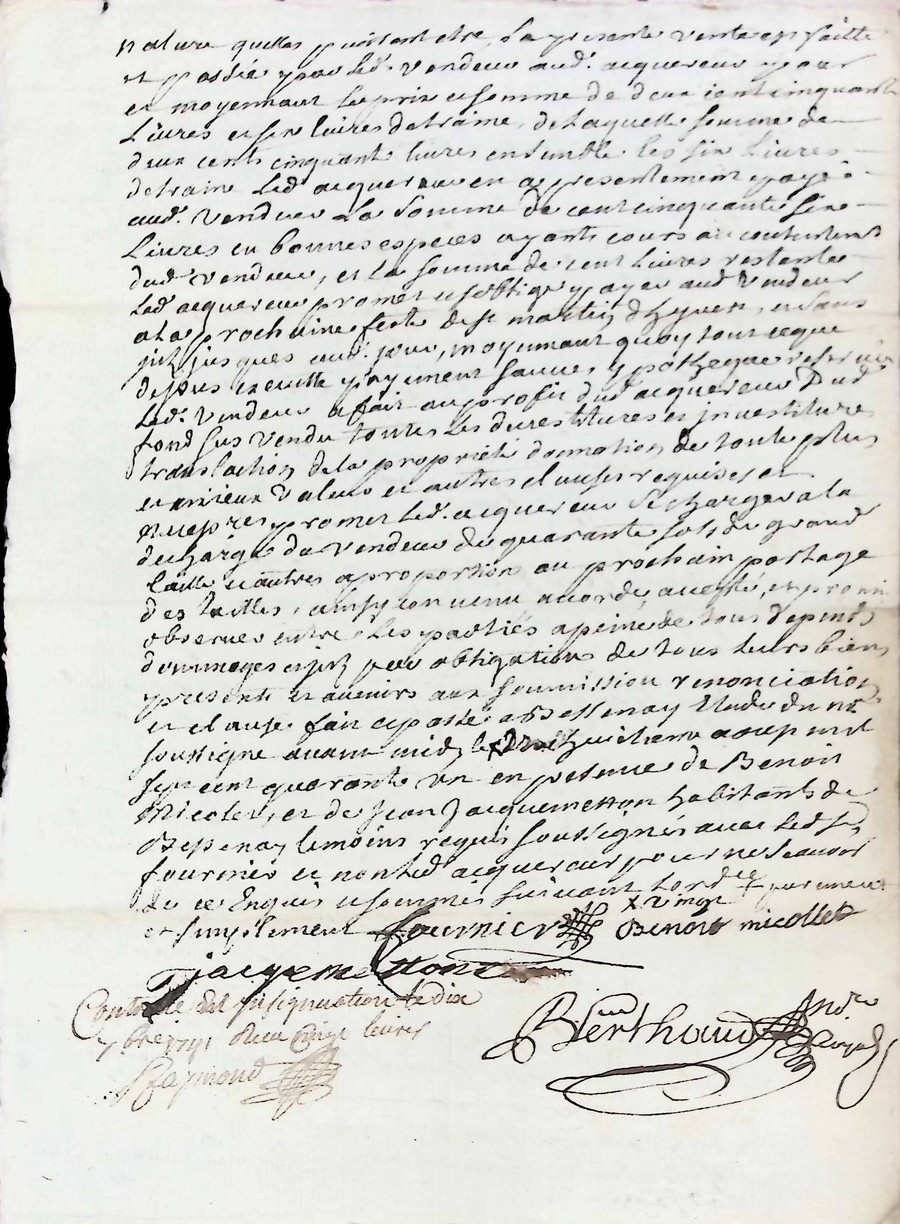 nature quelles puissent etre, La presente vente est faitte
et passée par led. vendeur aud. acquereur pour
et moyennant le prix et somme de deux cent cinquante
Livres et six livres detraine, de laquelle somme de
deux cents cinquante livres ensemble les six Livres
detraine led acquereur en a presentement payé
aud. vendeur La somme de cent cinquante six
Livres en bonnes especes ayants cours au contentement
dud. vendeur, et la somme de cent Livres restante
led acquereur promet et soblige payer aud vendeur
a la prochaine feste de st martin dhyvert, et sans
jusques aud. jour, moyennant quoy tout ce que
dessus et cette payement sauves ypotheque reservée
led. vendeur a fait au profit dud acquereur Dud.
fond sus vendu toutes les devestitures et investitures
translation de la propriété donnation de toute plus
et mieux valeur et autres clauses requises et
promet led. acquereur se charger a la
decharge du vendeur de quarante sols de grand
taille et autres a proportion au prochain partage
des tailles, ainsy convenu acordé accepté, et promis
observer entre les partiés a peine de tous depents
dommages par obligation de tous leurs biens
presents et avenirs aux soumission renonciations
et clause fait et passé a Bessenay Etude du nre
soussigne avant midy le huictieme aoust mil
sept cent quarante un en presence de Benoit
Micolet, et de Jean Jacquemetton habitants de
Bessenay temoins requis soussignés avec led Sr
fournier et non led acquereur pour ne scavoir
de ce Enquis et sommés suivant lordce
et simplement fournier X vingt Benoit micollet
J jacquemetton
Controllé et insignuation le dix
7bre 1741 Reçu livres
Raymond
Berthaud